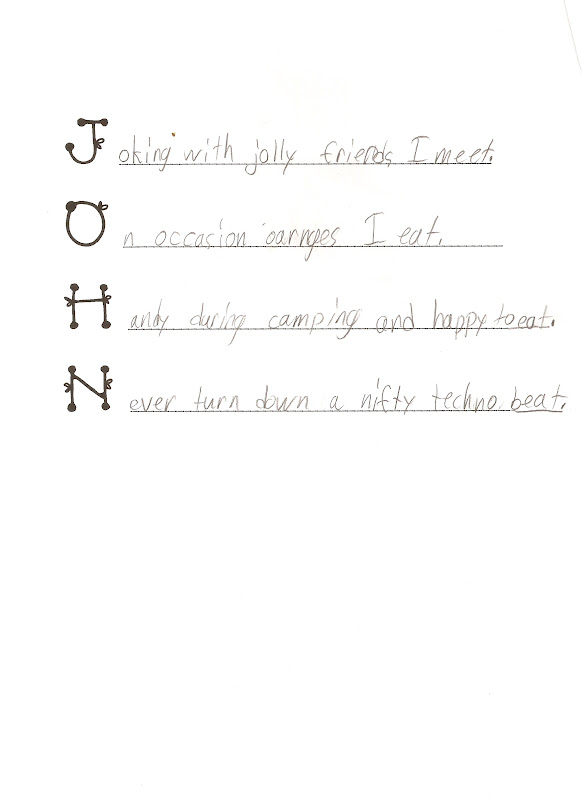 Joking with jolly friends I meet.
On occasion oarnges I eat.
Handy during camping and happy to eat.
Never turn down a nifty techno beat.